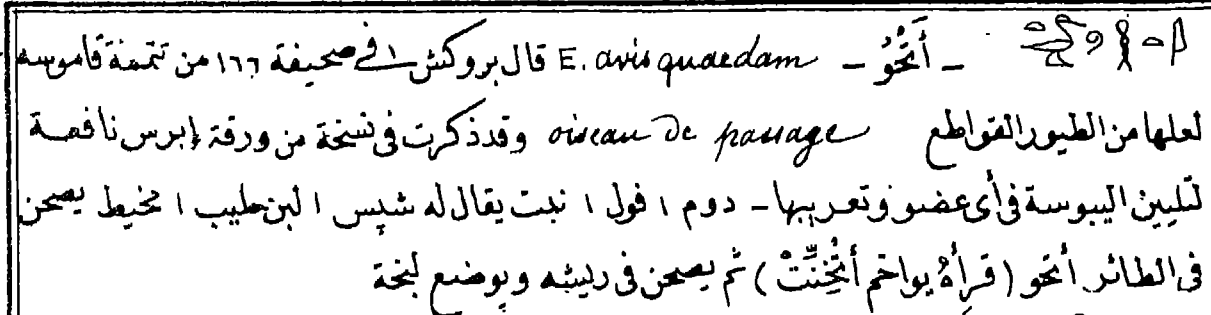 - أَتْخُو - E. avis quaedam قال بروكتش فى صحيفة ١٦٦ من تتمة قاموسه
لعلها من الطيور القواطع oiseau de passage وقد ذكرت فى نسخة من ورقة إبرس نافعة
لتليين اليبوسة فى أى عضو وتعريبها - دوم ١ فول ١ نبت يقال له شپس ١ لبن حليب ١ مخيط يصحن
فى الطائر أتخو (قرأهُ يواخم أَتْخِنِّتْ) ثم يصحن فى ريشه ويوضع لبخة